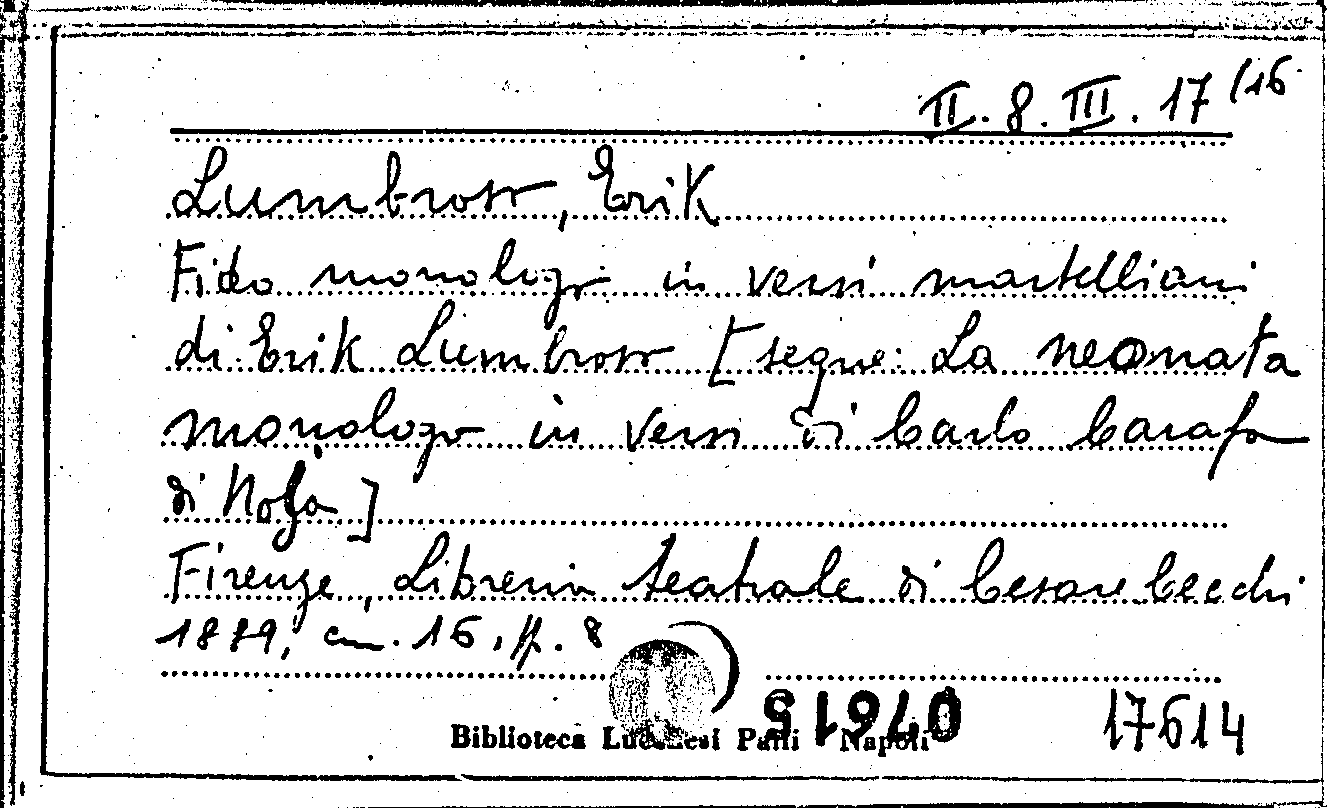 II. 8. III. 17 /16
Lumbroso, Erik
Fido monologo in versi martelliani
di Erik Lumbroso [segue: La neonata
monologo in versi di Carlo Carafa
di Noja]
Firenze, Libreria teatrale di Cesare Cecchi
1889, cm. 16, pp. 8
Biblioteca Lucchesi Palli Napoli
17614